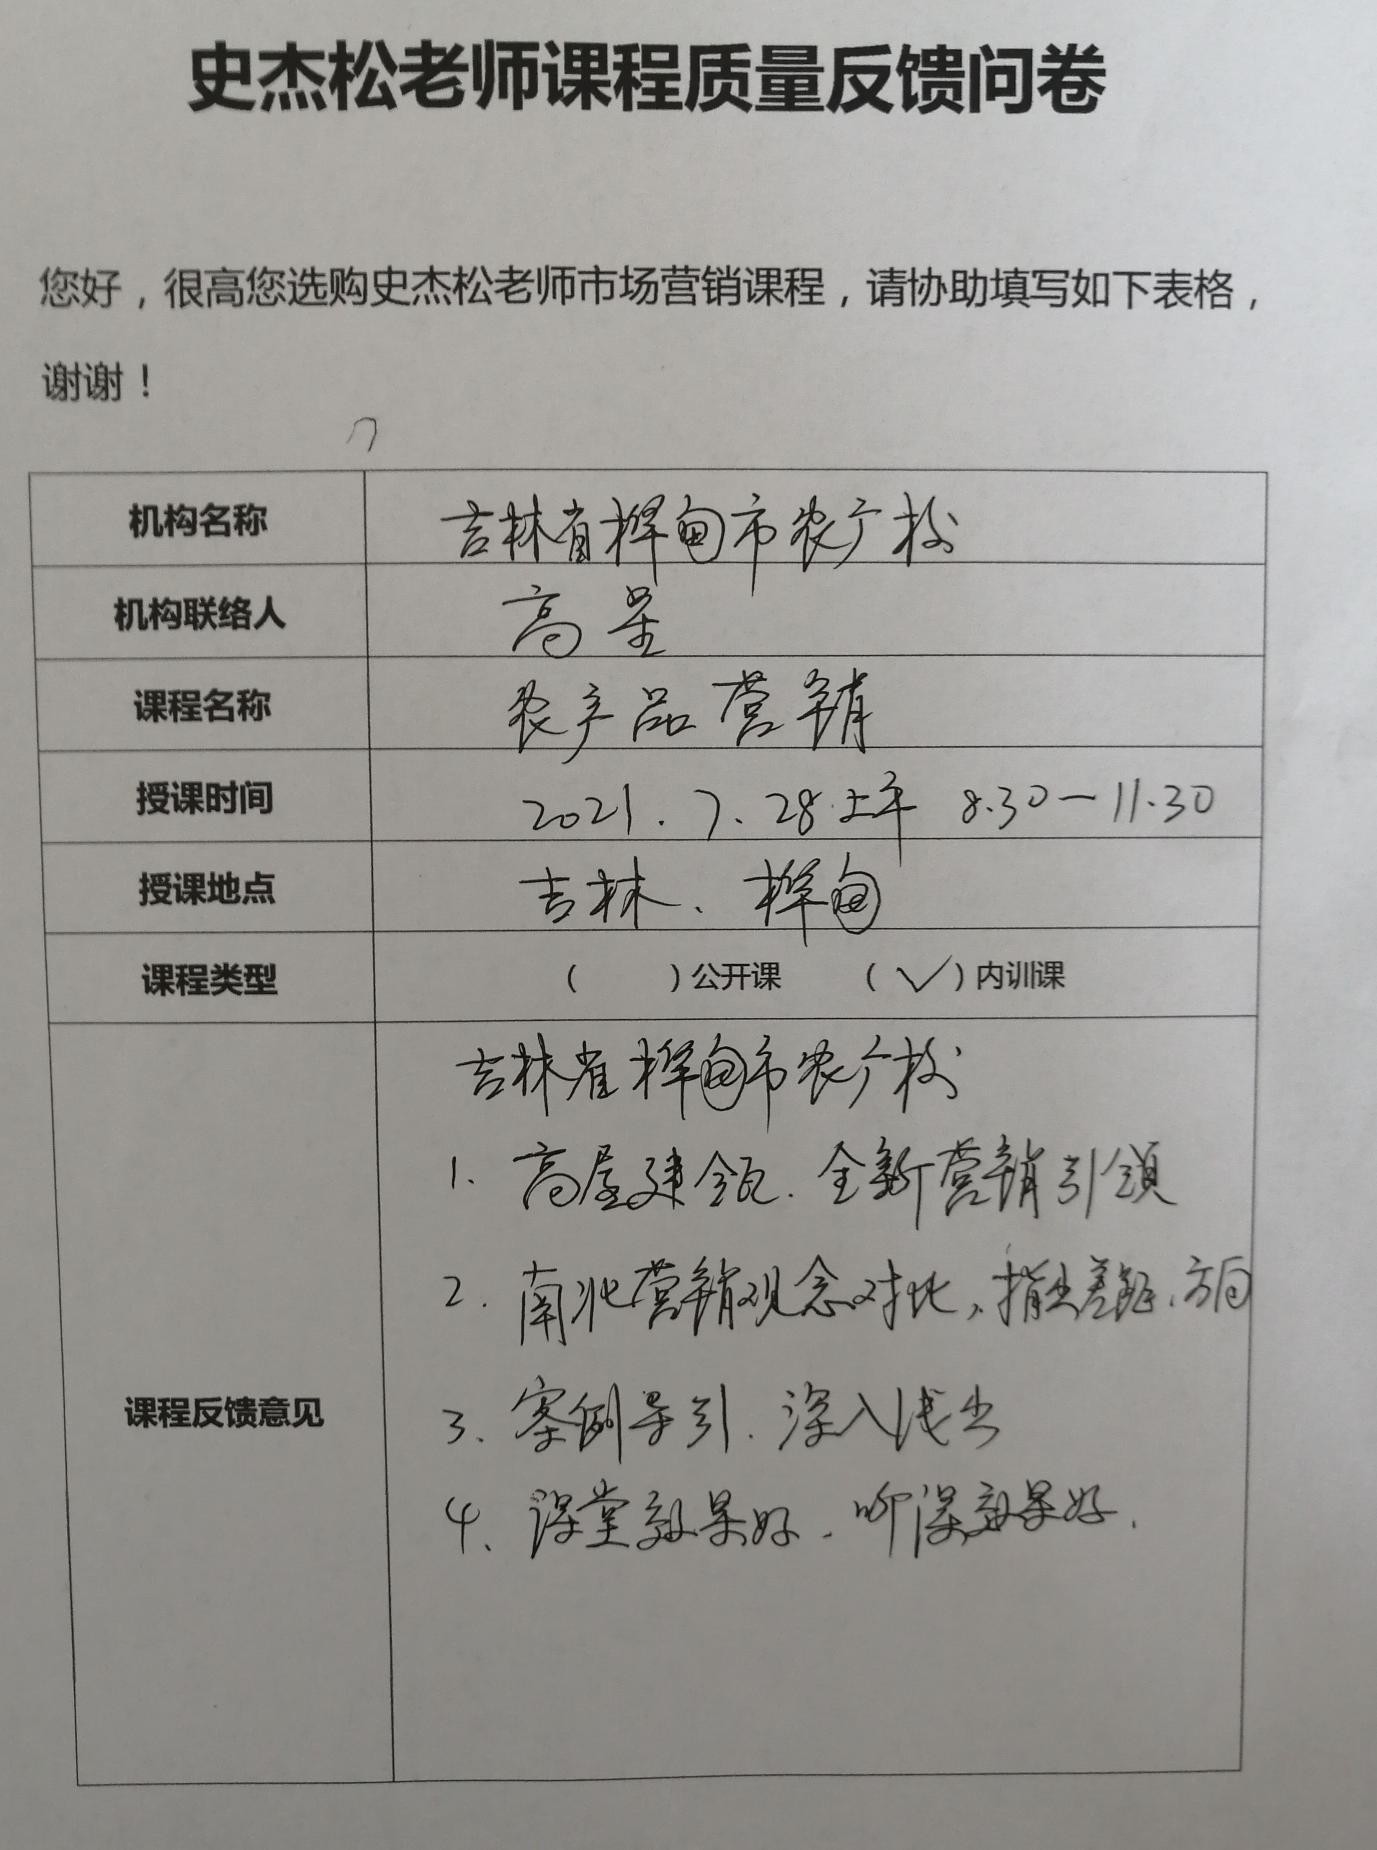 史杰松老师课程质量反馈问卷
您好，很高您选购史杰松老师市场营销课程，请协助填写如下表格，
谢谢！
机构名称 吉林省桦甸市农广校
机构联络人 高
课程名称 农产品营销
授课时间 2021.7.28.上午 8.30—11.30
授课地点 吉林、桦甸
课程类型 （ ）公开课 （✓）内训课
吉林省桦甸市农广校
1. 高屋建瓴.全新营销引领
2. 南北营销观念对比，指出差距、方向
课程反馈意见
3、案例导引.深入浅出
4、课堂效果好.听课效果好.